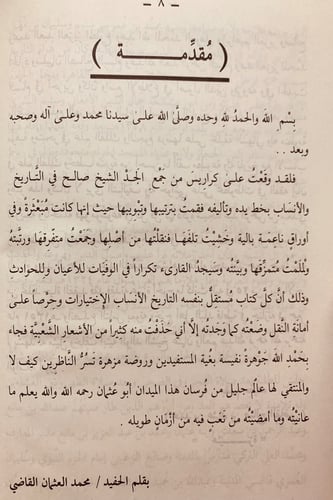 – ٨ –
( مُقدِّمـــــــة )
بِسْمِ الله والحمدُ لله وحده وصلَّى الله علىٰ سيدنا محمد وعلىٰ آله وصحبه
وبعد . .
فلقد وقَفْتُ علىٰ كراريسَ من جَمْعِ الجدِّ الشيخ صالح في التَّاريخ
والأنسَاب بخط يده وتأليفه فقمتُ بترتيبها وتبْويبها حيث إنها كانت مُبَعْثرةً وفي
أوراقٍ ناعمَة بالية وخَشيْتُ تلفَهَا فنقلتُها من أصْلِها وجَمعْتُ متفرقهَا ورتَّبتهُ
ولَملمْتُ مُتمزِّقهَا وبيَّنْتُه وسَيجدُ القارىء تكراراً في الوفيَات للأعيان وللحوادث
وذلك أنَّ كلَّ كتاب مُستقِلٌّ بنفسه التاريخ الأنساب الإختيارات وحرْصاً علىٰ
أمانَة النَّقل وضعْتُه كما وَجدتُه إلاَّ أني حَذفْتُ منه كثيراً من الأشعار الشَّعْبيَّة فجاء
بحَمْد الله جَوْهرةً نفيسة بغية المستفيدين وروضة مزهرة تَسرُّ النَّاظرين كيف لا
والمنتقي لها عالمٌ جليل من فُرسان هذا الميدان أبُو عُثمان رحمه الله والله يعلم ما
عانيْتُه وما أمضيْتُه من تَعَبٍ فيه من أزْمَانٍ طويله .
بقلم الحفيد / محمد العثمان القاضي